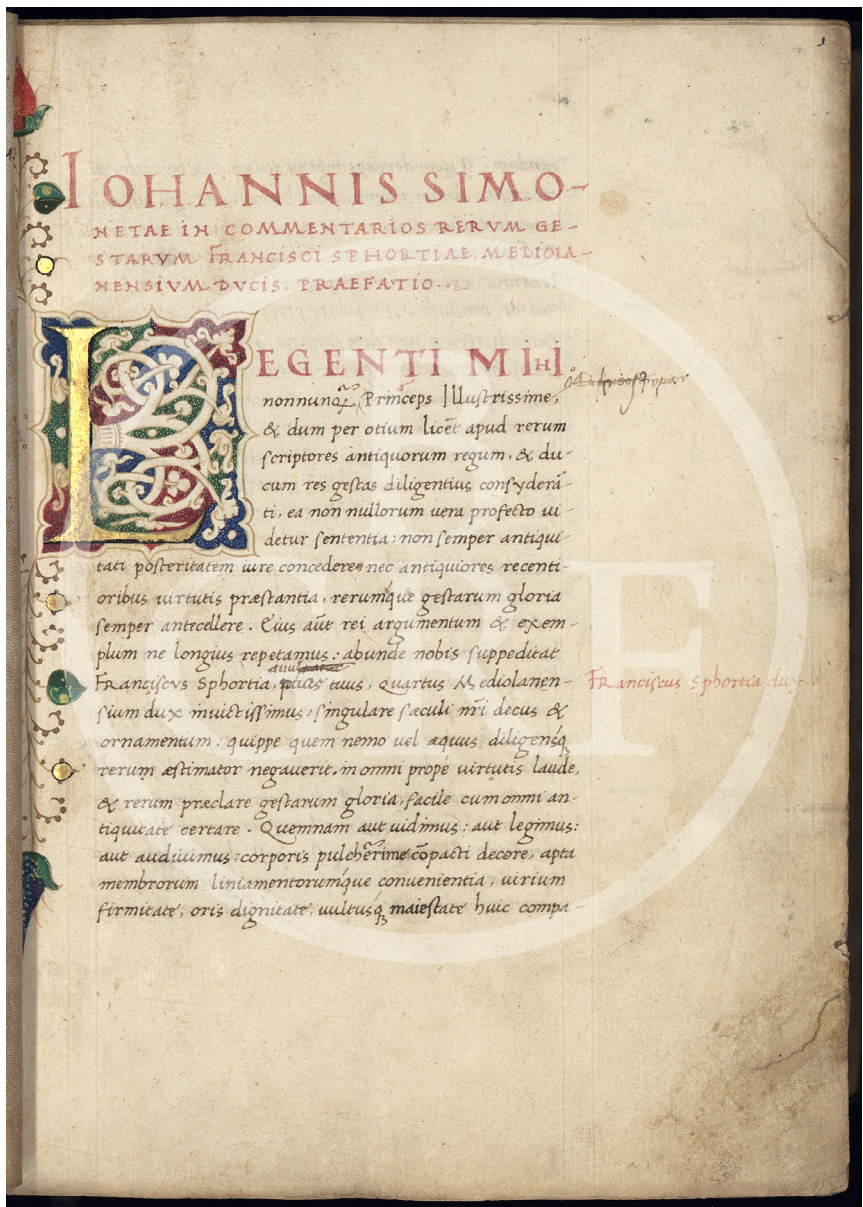 IOHANNIS SIMO-
NETAE IN COMMENTARIOS RERVM GE-
STARVM FRANCISCI SPHORTIAE MEDIOLA-
NENSIVM DVCIS. PRAEFATIO.
LEGENTI MIHI
nonnunqᷓ, Princeps Illustrissime,
& dum per otium licet apud rerum
scriptores antiquorum regum, & du-
cum res gestas diligentius consyderā-
ti, ea non nullorum uera profecto ui-
detur sententia: non semper antiqui-
tati posteritatem iure concedere: nec antiquiores recenti-
oribus uirtutis præstantia, rerumque gestarum gloria
semper antecellere. Eius aūt rei argumentum & exem-
plum ne longius repetamus: abunde nobis suppeditat
Franciscus Sphortia, tuus, quartus Mediolanen-
Franciscus Sphortia dux
sium dux inuictissimus, singulare sæculi nr̄i decus &
ornamentum: quippe quem nemo uel æquus diligensq;
rerum æstimator negauerit, in omni prope uirtutis laude,
& rerum præclare gestarum gloria, facile cum omni an-
tiquitate certare. Quemnam aut uidimus: aut legimus:
aut audiuimus: corporis pulcherrime cōpacti decore, apta
membrorum liniamentorumque conuenientia, uirium
firmitate, oris dignitate, uultusq; maiestate huic compa-
BnF